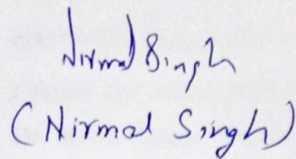 Nirmal Singh
(Nirmal Singh)